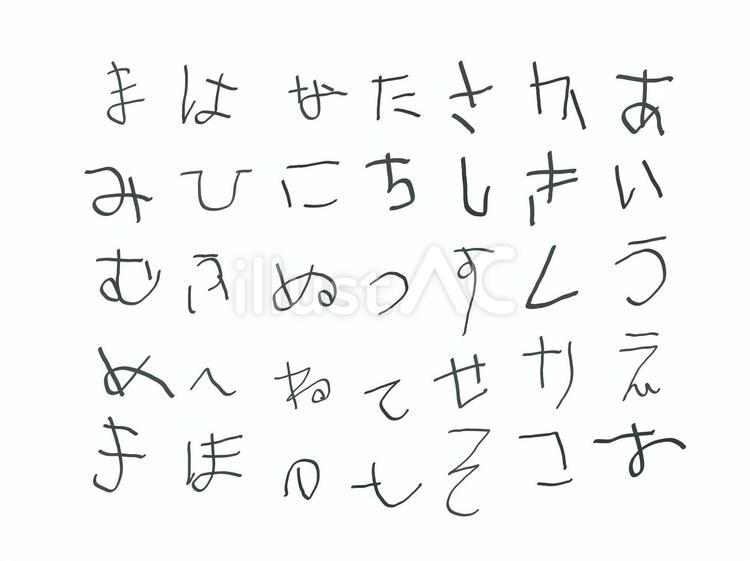 あいうえお
かきくけこ
さしすせそ
たちつてと
なにぬねの
はひふへほ
まみむめも
illustAC